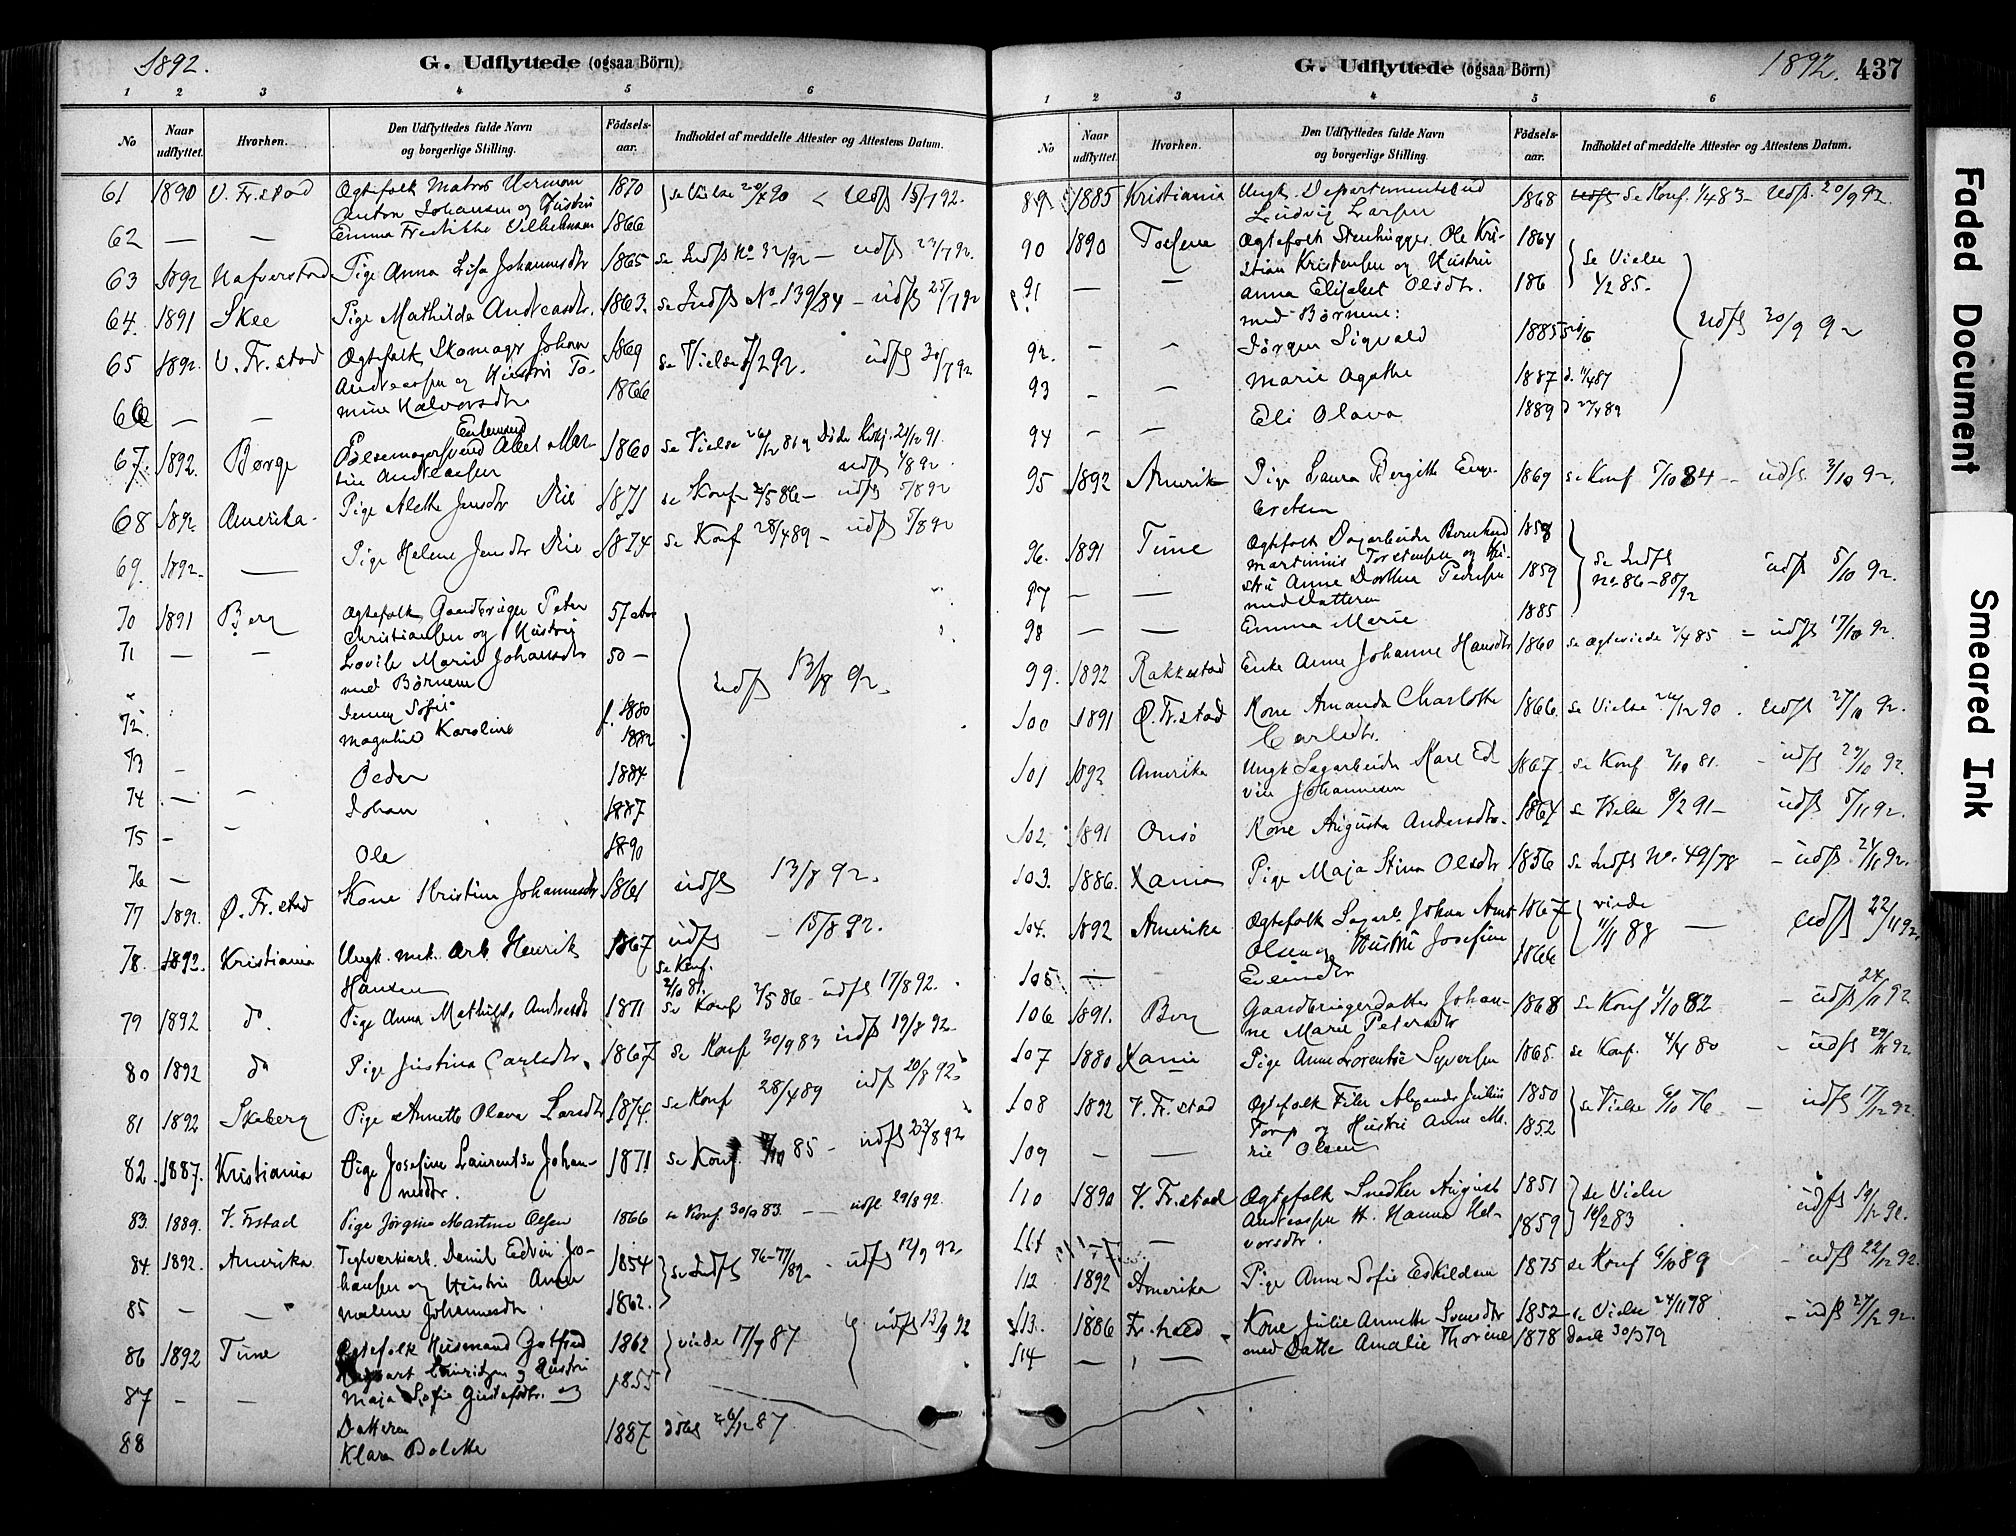 1892.
G. Udflyttede (ogsaa Börn)
1 2 3 4 5 6
No
Naar udflyttet.
Hvorhen.
Den Udflyttedes fulde Navn
og borgerlige Stilling.
Födsels-
aar.
Indholdet af meddelte Attester og Attestens Datum.
61 1890 V. Fr.stad Ægtefolk Matros Herman 1870
Anton Johansen og Hustru
62 — — Emma Fredrikke Vilhelmsen 1866
63 1892 Nafverstad Pige Anna Lisa Johannesdtr 1865 se Indfl No 32/92 — udfl 23/7 92.
64. 1891 Skee Pige Mathilda Andreasdtr. 1863. se Indfl No 139/84 — udfl 25/7 92
65 1892. V. Fr.stad Ægtefolk Skomager Johan 1869 udfl 30/7 92
Andreassen og Hustru To-
66 — — mine Halvorsdtr 1866
67. 1892. Borge Enkemand
Andreassen 1860
68 1892 Amerika. Pige Alethe Jensdtr Rie 1871 se Konf 2/5 86 — udfl 5/8 92
69. 1892. — Pige Helene Jensdtr Rie 1874 se Konf 28/4 89 — udfl 5/8 92
70 1891 Berg Ægtefolk Gaardbruger Peter 57 abr
Christiansen og Hustru
71 — — Lovise Marie Johansdtr 50 —
med Børnene udfl 13/8 92.
Jenny Sofie f. 1880
72. Magnhild Karoline 1882
73 — Peder 1884
74 — — Johan 1887
75 — — Ole 1890
76 —
77 1892. Ø. Fr.stad Kone Kristine Johannesdtr 1861 udfl 13/8 92.
78. 1892. Kristiania Ungk. mek. Arb. Henrik 1867 udfl — 15/8 92.
Hansen se Konf.
2/10 81.
79 1892 do. Pige Anna Mathilde Andreasdtr 1871 se Konf 2/5 86 — udfl 17/8 92.
80 1892 do Pige Justina Carlsdtr. 1867 se Konf 30/9 83 udfl 19/8 92.
81 1892 Skeberg Pige Annette Olava Larsdtr 1874. se Konf 28/4 89 udfl 20/8 92.
82. 1887. Kristiania Pige Josefine Laurentse Johan- 1871 se Konf. 85 — udfl 23/8 92
nesdtr.
83. 1889. V. Frstad Pige Jørgine Martine Olsen 1866 se Konf. 30/9 83. — udfl 29/8 92.
84. 1892. Amerika Teglverksarb. Daniel Edvin Jo- 1854 se Indfl 76-77/89. — udfl 12/9 92.
hansen og Hustru Anne
85 — — Malene Johannesdtr. 1862.
86 1892 Tune Ægtefolk Husmand Gotfred 1862 viede 17/7 87 udfl 13/9 92
og Hustru
87 — — Maja Sofie Gustafsdtr. og 1855
Datteren
88 Klara Bolette 1887 døbt 26/12 87
G. Udflyttede (ogsaa Börn)
1892. 437
1 2 3 4 5 6
No
Naar udflyttet.
Hvorhen.
Den Udflyttedes fulde Navn
og borgerlige Stilling.
Födsels-
aar.
Indholdet af meddelte Attester og Attestens Datum.
89 1885 Kristiania Ungk. Departementsbud 1868 se Konf. 1/4 83 — Udfl. 20/9 92.
Ludvig Larsen
90 1890 Ægtefolk Stenhugger Ole Kri- 1864 se Vielse
stian Kristensen og Hustru 1/2 85.
91 — — Anna Elisabet Olsdtr. 186
med Børnene: udfl 30/9 92
92. — — Jørgen Sigvald 1885
93 — — Marie Agathe 1887
94 — — Eli Olava 1889
95 1892 Amerika Pige Laura Bergitte Eng- 1869 se Konf 5/10 84 — udfl. 3/10 92.
96. 1891 Tune Ægtefolk Dagarbeider Bernhard se Indfl udfl 5/10 92.
Martinius Torstensen og Hu- No 86–88/92
97 — — stru Anne Dorthea Pedersen 1859
med Datteren
98 — — Emma Marie 1885
99. 1892 Rakkestad Enke Anne Johanne Hansdtr 1860 se Ægteviede 2/4 85 — udfl 17/10 92.
100 1891 Ø. Fr.stad Kone Amanda Charlotte 1866. se Vielse 90. Udfl 27/10 92.
Carlsdtr.
101 1892 Amerika Ungk Sagarbeider Karl Ed- 1867. se Konf 2/10 81. — udfl 29/10 92.
vin Johannesen
102. 1891 Onsø Kone Augusta Andersdtr. 1864 se Vielse 8/2 91 — udfl 5/11 92.
103. 1886. Xania Pige Maja Stina Olsdtr 1856 se Indfl No. 49/78 — udfl 21/11 92.
104. 1892 Amerika Ægtefolk Sagarb. Johan 1867 viede
Olsen og Hustru Josefine 1866 11/11 88 — Udfl 22/11 92.
105 —
106 1891. Berg Gaardbrugerdatter Johan- 1868 se Konf 1/10 82 — udfl 24/11 92
ne Marie Petersdtr
107 1880 Xania Pige Anne Lorentse Syversen 1865. se Konf. 4/4 80 — udfl 29/11 92.
108 1892 V. Fr.stad Ægtefolk Filer Alexander Julius 1850 se Vielse 6/10 76 — udfl 17/12 92.
Torp og Hustru Anne Ma- 1852
109 — — rie Olsen
110 1890 V. Fr.stad Ægtefolk Snedker August 1851 se Vielse udfl 19/12 92.
Andreassen H. Hanna Hal- 1859 16/2 83
111 — — vorsdtr.
112 1892 Amerika Pige Anne Sofie Eskildsen 1875 se Konf 6/10 89 — udfl 22/12 92.
113. 1886 Fr.hald Kone Julie Annette Svensdtr 1852 — se Vielse 24/11 78 — udfl 27/12 92.
114 — — med Datter Amalie Thorine 1878 døbt 30/3 79
Faded Document
Smeared Ink